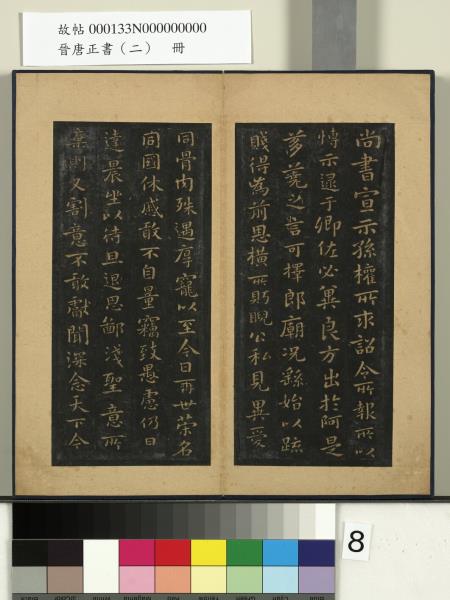 故帖 000133N000000000
晉唐正書（二） 冊
尚書宣示孫權所求詔令所報所以
博示逮于卿佐必冀良方出於阿是
芻蕘之言可擇郎廟況繇始以疏
賤得為前恩橫所眄睨公私見異愛
同骨肉殊遇厚寵以至今日再世榮名
同國休慼敢不自量竊致愚慮仍日
達晨坐以待旦退思鄙淺聖意所
棄則又割意不敢獻聞深念天下今
8
Black
3/Color
White
Magenta
Red
Yellow
Green
Cyan
Blue